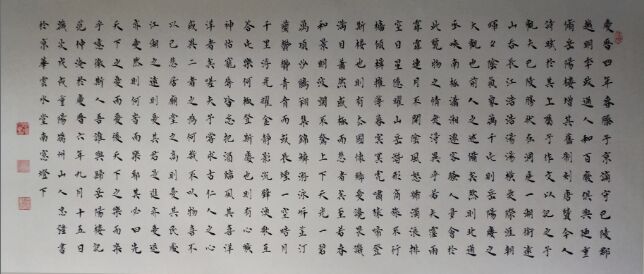 慶曆四年春滕子京謫守巴陵郡
越明年政通人和百廢俱興乃重
修岳陽樓增其舊制刻唐賢今人
詩賦於其上屬予作文以記之予
觀夫巴陵勝狀在洞庭一湖銜遠
山吞長江浩浩湯湯橫無際涯朝
暉夕陰氣象萬千此則岳陽樓之
大觀也前人之述備矣然則北通
巫峽南極瀟湘遷客騷人多會於
此覽物之情得無異乎若夫霪雨
霏霏連月不開陰風怒號濁浪排
空日星隱曜山岳潛形商旅不行
檣傾楫摧薄暮冥冥虎嘯猿啼登
斯樓也則有去國懷鄉憂讒畏譏
滿目蕭然感極而悲者矣至若春
和景明波瀾不驚上下天光一碧
萬頃沙鷗翔集錦鱗游泳岸芷汀
蘭鬱鬱青青而或長煙一空皓月
千里浮光躍金靜影沉璧漁歌互
答此樂何極登斯樓也則有心曠
神怡寵辱偕忘把酒臨風其喜洋
洋者矣嗟夫予嘗求古仁人之心
或異二者之為何哉不以物喜不
以己悲居廟堂之高則憂其民處
江湖之遠則憂其君是進亦憂退
亦憂然則何時而樂耶其必曰先
天下之憂而憂後天下之樂而樂
乎噫微斯人吾誰與歸岳陽樓記
范仲淹慶曆六年九月十五日
歲次戊戌重陽山人書
於京華雲水堂南窗燈下